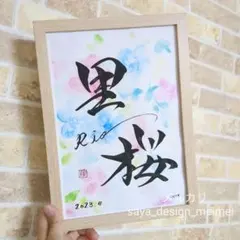 里
Rio
桜
2023.
saya_design_meimei